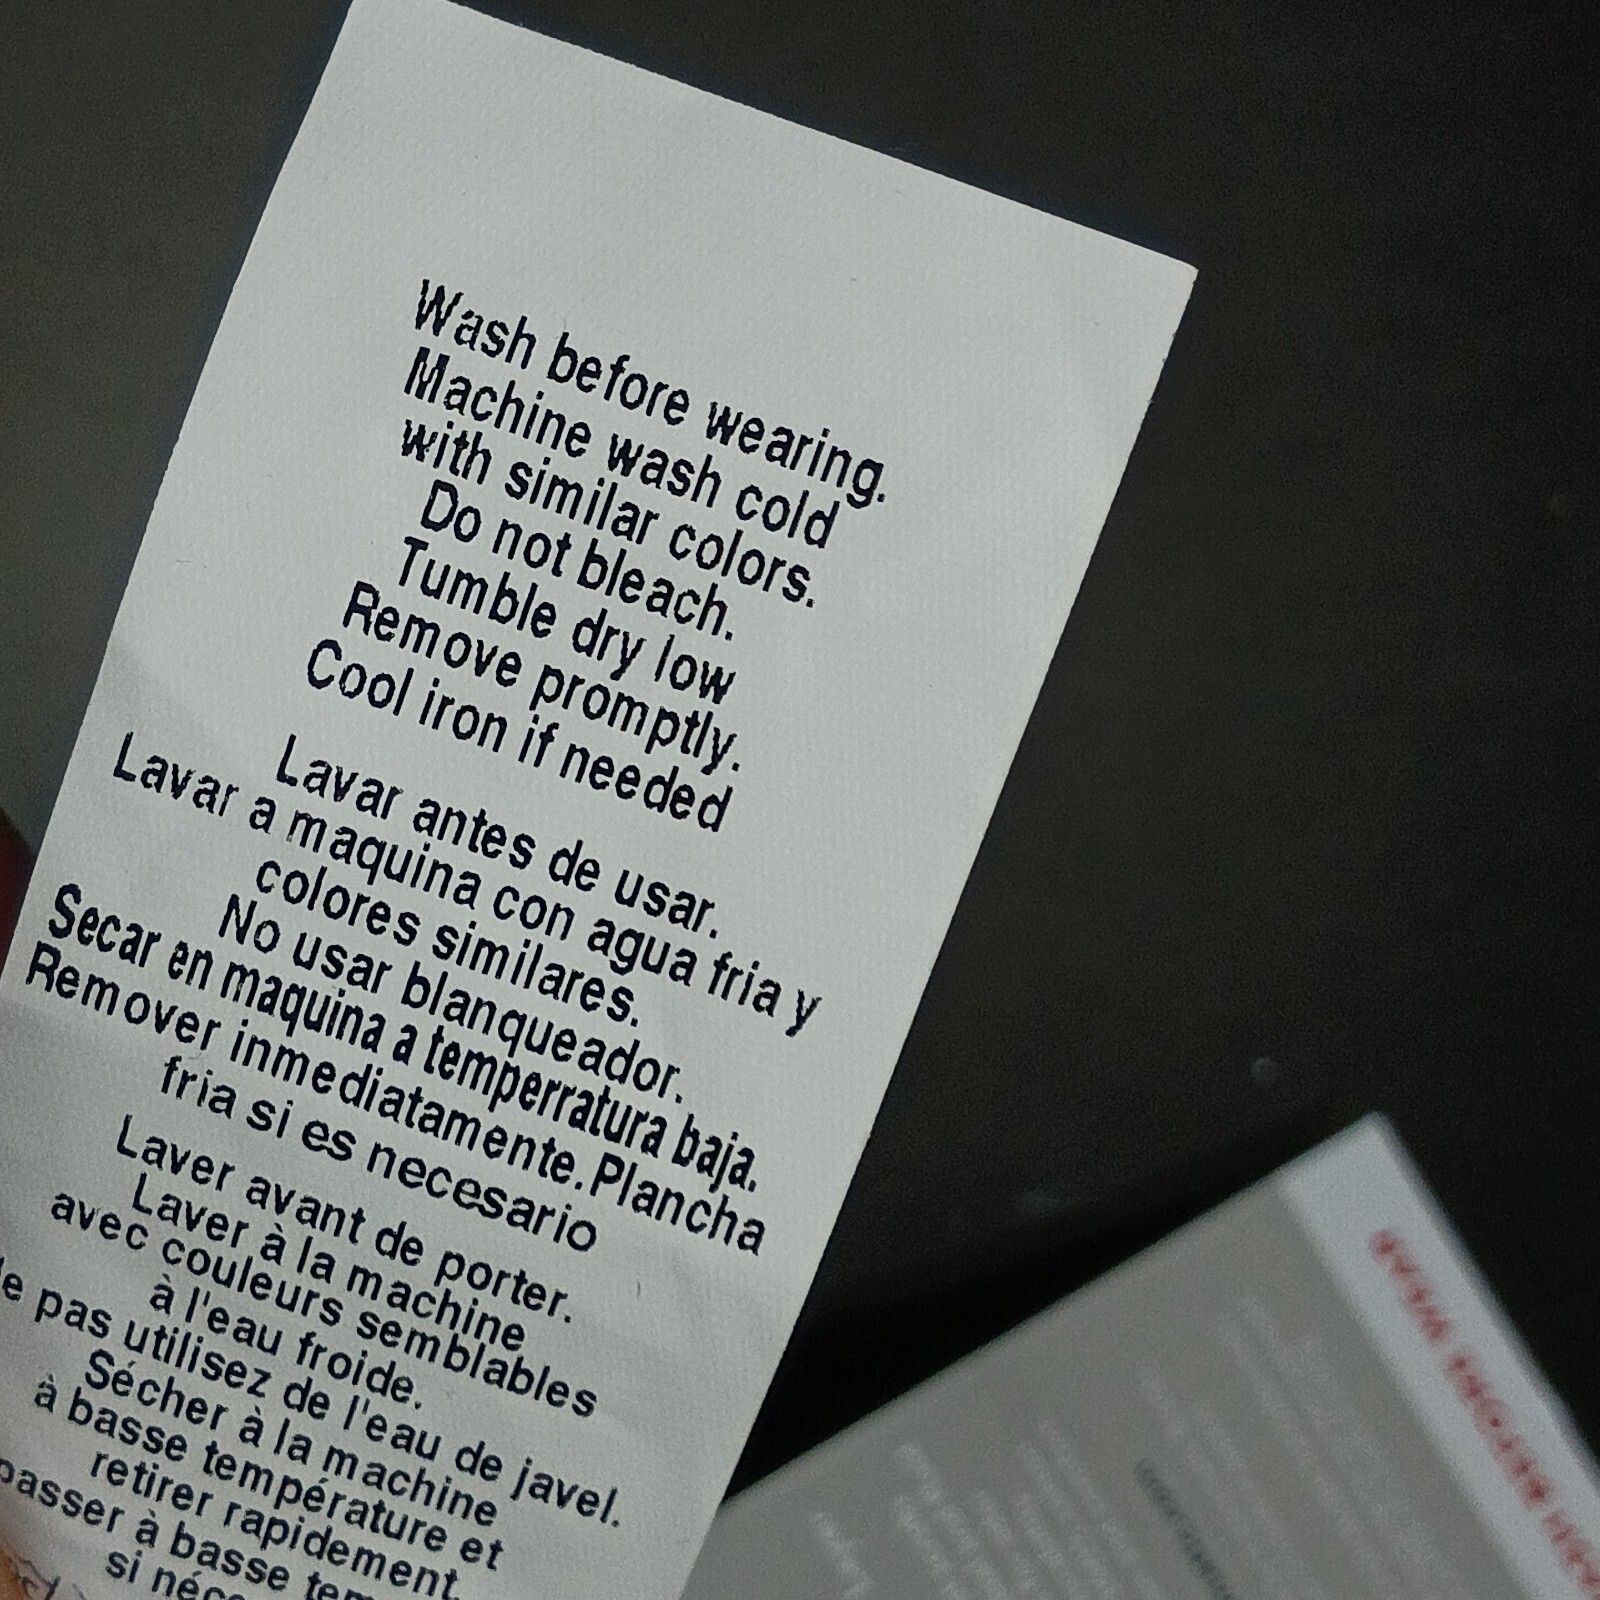 Wash before wearing.
Machine wash cold
with similar colors.
Do not bleach.
Tumble dry low
Remove promptly.
Cool iron if needed
Lavar antes de usar.
Lavar a maquina con agua fria y
colores similares.
No usar blanqueador.
Secar en maquina a temperratura baja.
Remover inmediatamente. Plancha
fria si es necesario
Laver avant de porter.
Laver à la machine
avec couleurs semblables
à l'eau froide.
pas utilisez de l'eau de javel.
Sécher à la machine
à basse température et
retirer rapidement.
à basse
si
WASH BEFORE WEAR